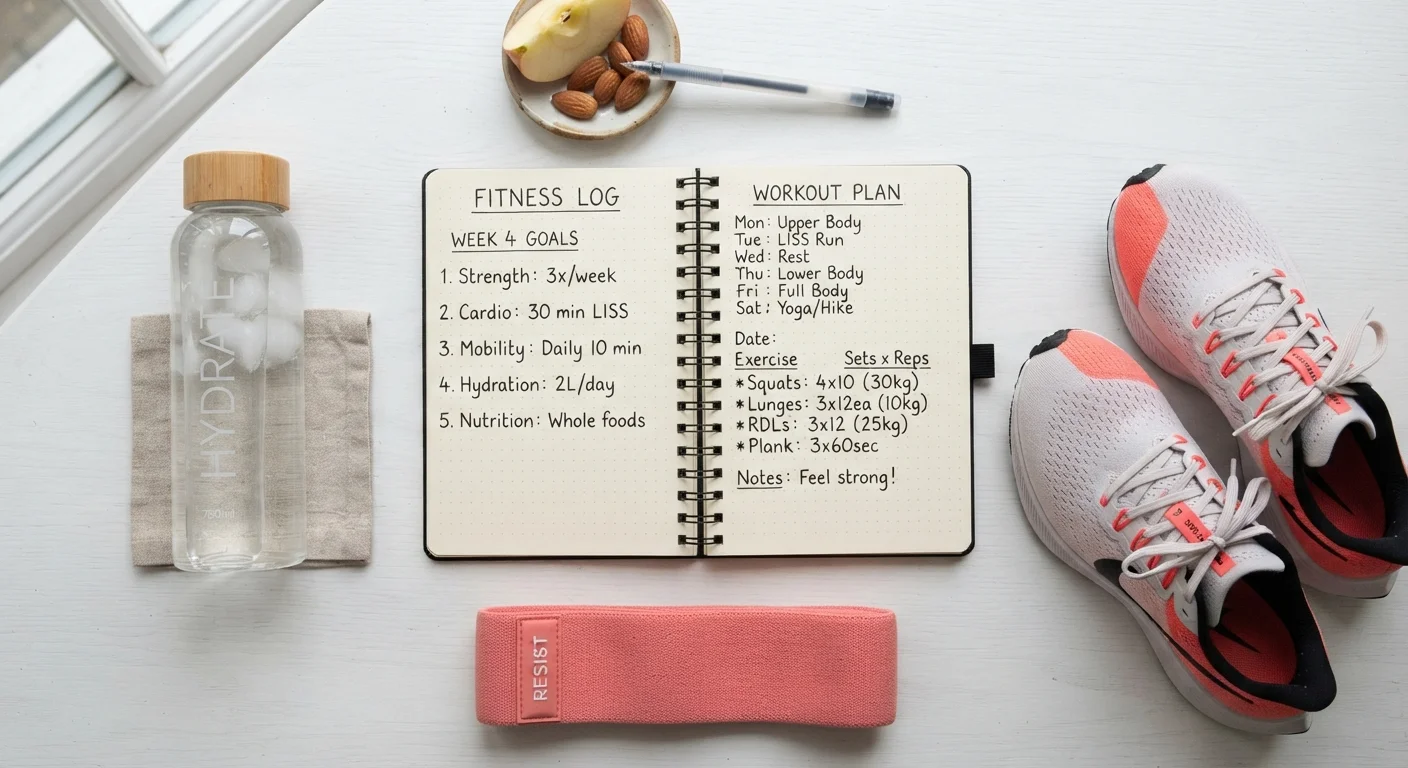 HYDRATE
750ml
FITNESS LOG
WEEK 4 GOALS
1. Strength: 3x/week
2. Cardio: 30 min LISS
3. Mobility: Daily 10 min
4. Hydration: 2L/day
5. Nutrition: Whole foods
WORKOUT PLAN
Mon: Upper Body
Tue: LISS Run
Wed: Rest
Thu: Lower Body
Fri: Full Body
Sat: Yoga/Hike
Date:
Exercise Sets x Reps
*Squats: 4x10 (30kg)
*Lunges: 3x12ea (10kg)
*RDLs: 3x12 (25kg)
*Plank: 3x60sec
Notes: Feel strong!
RESIST